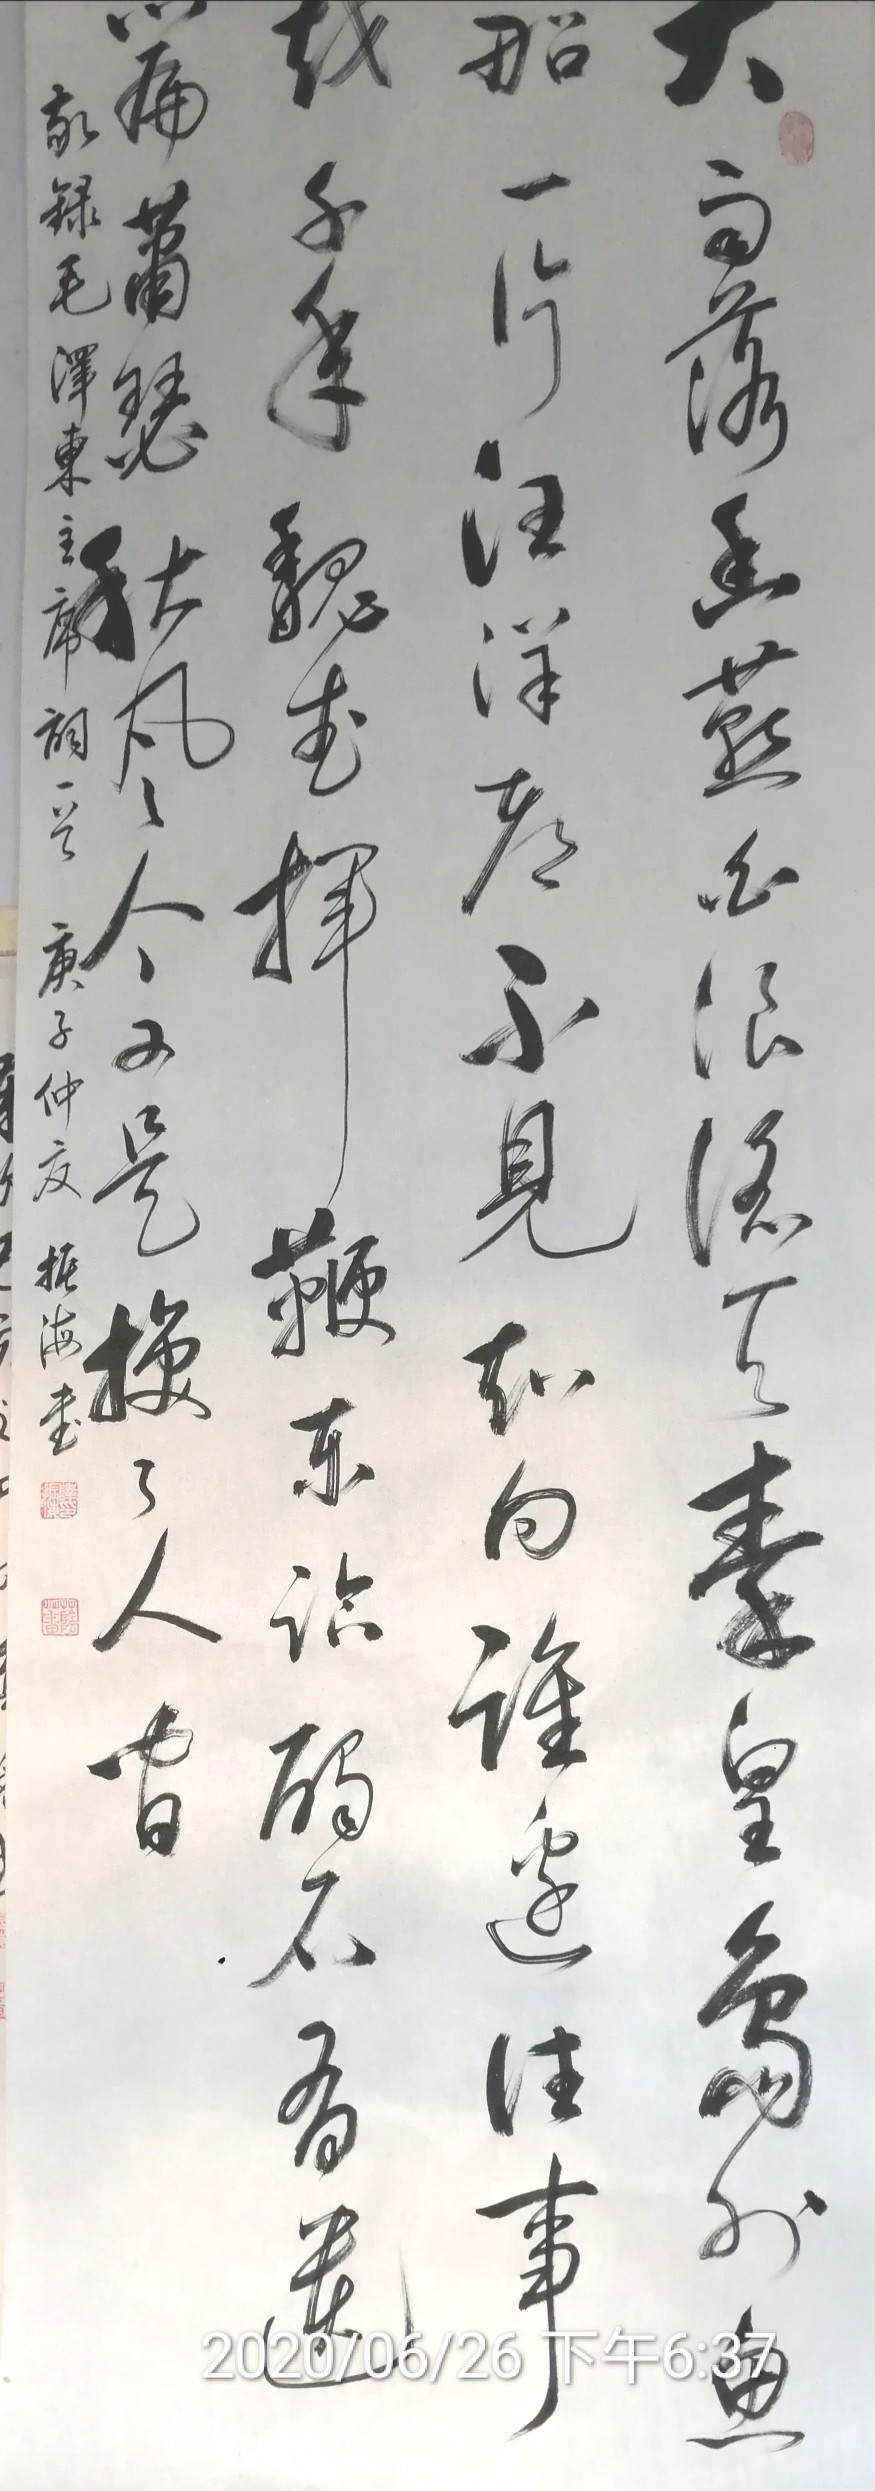 大雨落幽燕白浪滔天秦皇島外魚
船一片汪洋都不見知向誰邊往事
越千年魏武揮鞭东临碣石有遺
篇蕭瑟秋風今又是換了人间
敬録毛澤東主席詞一首 庚子仲夏 振海書
2020/06/26 下午6:37